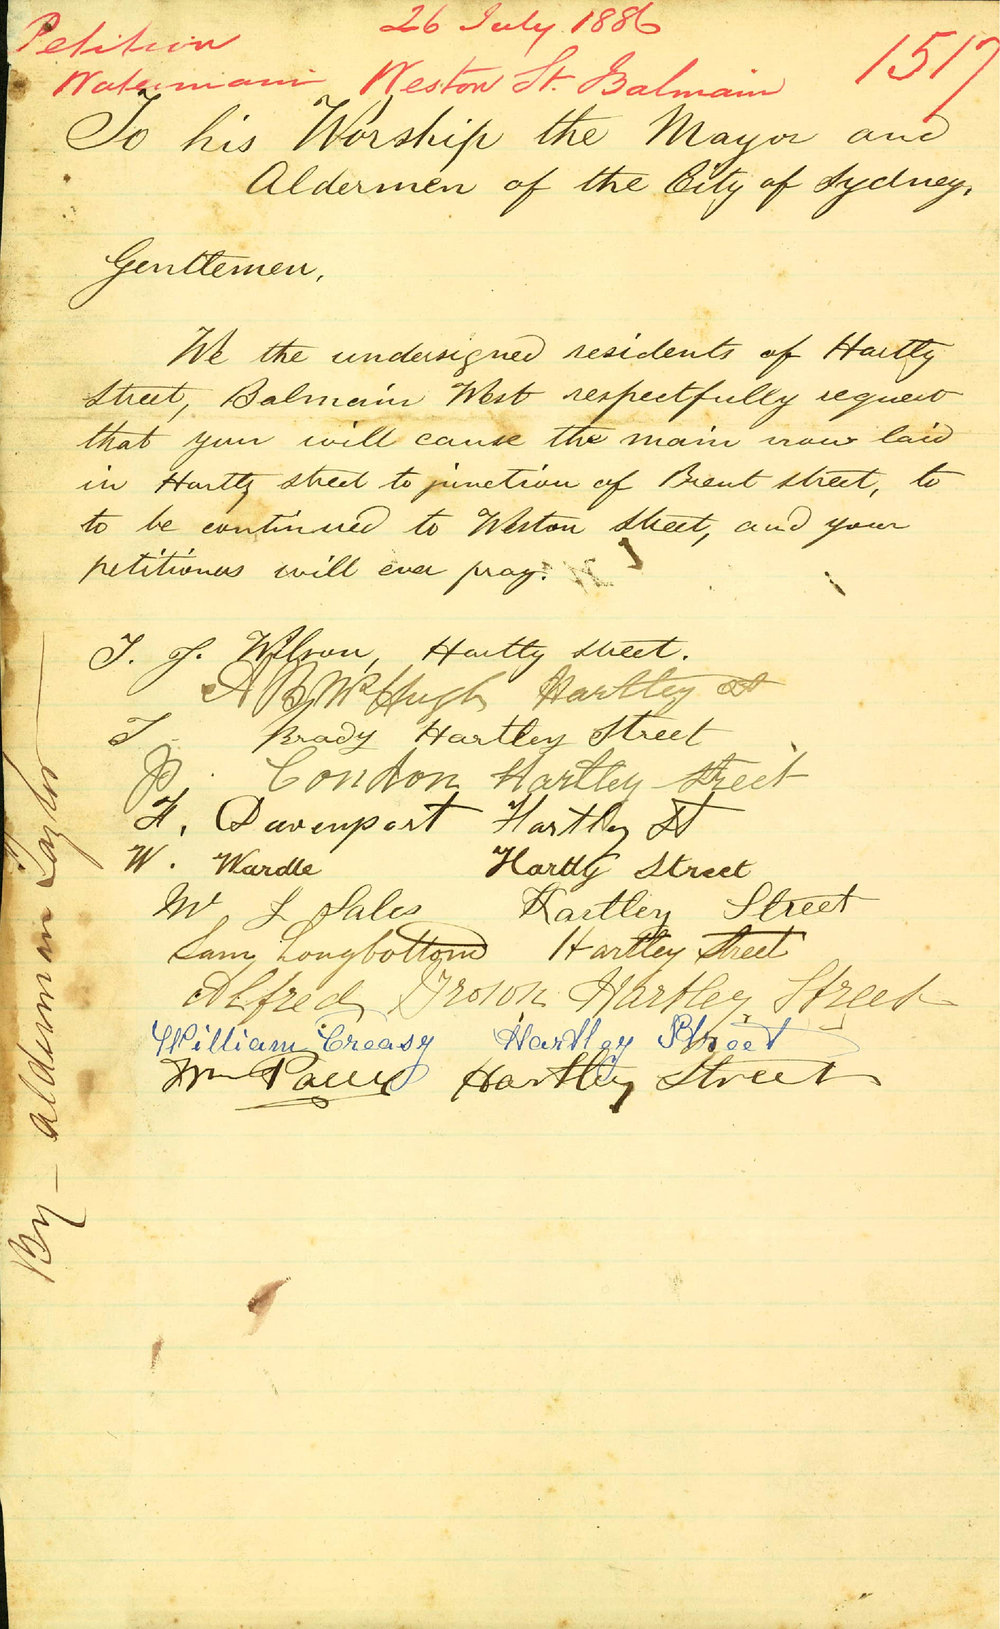 Petition 26 July 1886 1517
Watermain Weston St. Balmain
To his Worship the Mayor and
Aldermen of the City of Sydney.
Gentlemen,
We the undersigned residents of Hartly
Street, Balmain West respectfully request
that you will cause the main now laid
in Hartly street to junction of Brent street, to
to be continued to Weston street, and your
petitioners will ever pray.
T. J. Wilson, Hartly street.
A B McHugh Hartley St
T Brady Hartley Street
P. Condon Hartley Street
H. Davenport Hartley St
W. Wardle Hartly Street
W J Sales Hartley Street
Sam Longbottom Hartley Street
Alfred Hartley Street
William Creasy Hartley Street
Wm Hartley Street
By - alderman Taylor